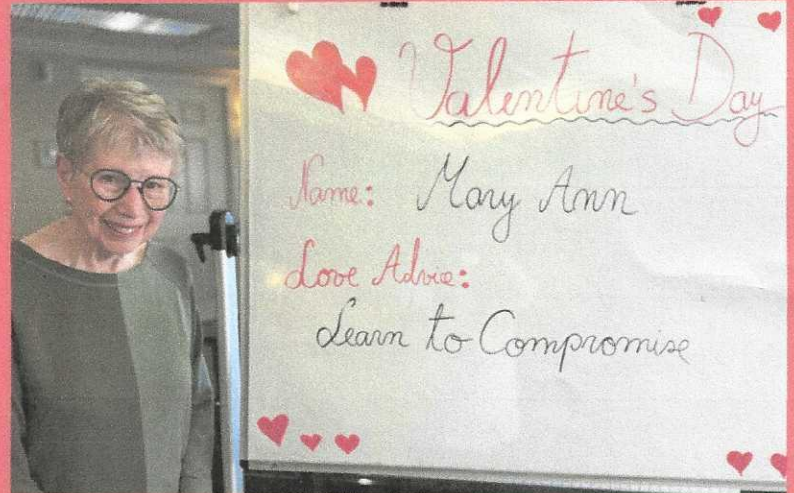 Valentine's Day
Name: Mary Ann
Love Advice:
Learn to Compromise